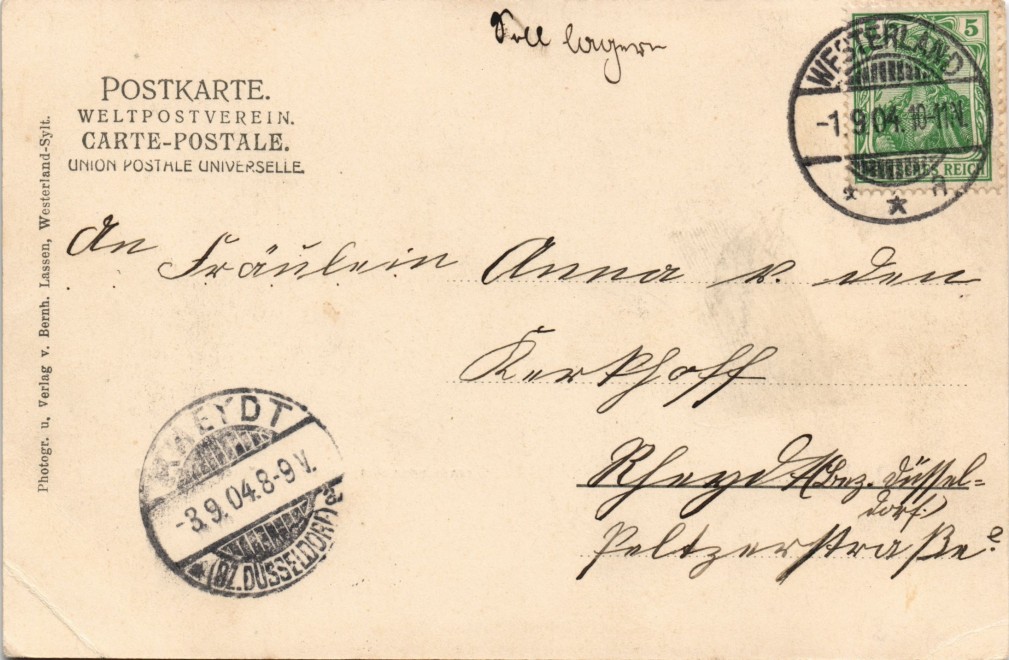 Soll lagern
POSTKARTE.
WELTPOSTVEREIN.
CARTE-POSTALE.
UNION POSTALE UNIVERSELLE.
Photogr. u. Verlag v. Bernh. Lassen, Westerland-Sylt.
5
DEUTSCHES REICH
WESTERLAND
-1.9.04. 10-11 N.
* * a
An
Fräulein Anna v. den
Kerkhoff
Rheydt (Bez. Düssel=
dorf.)
Peltzerstraße?
RHEYDT
-3.9.04. 8-9 V.
* (BZ. DÜSSELDORF) a